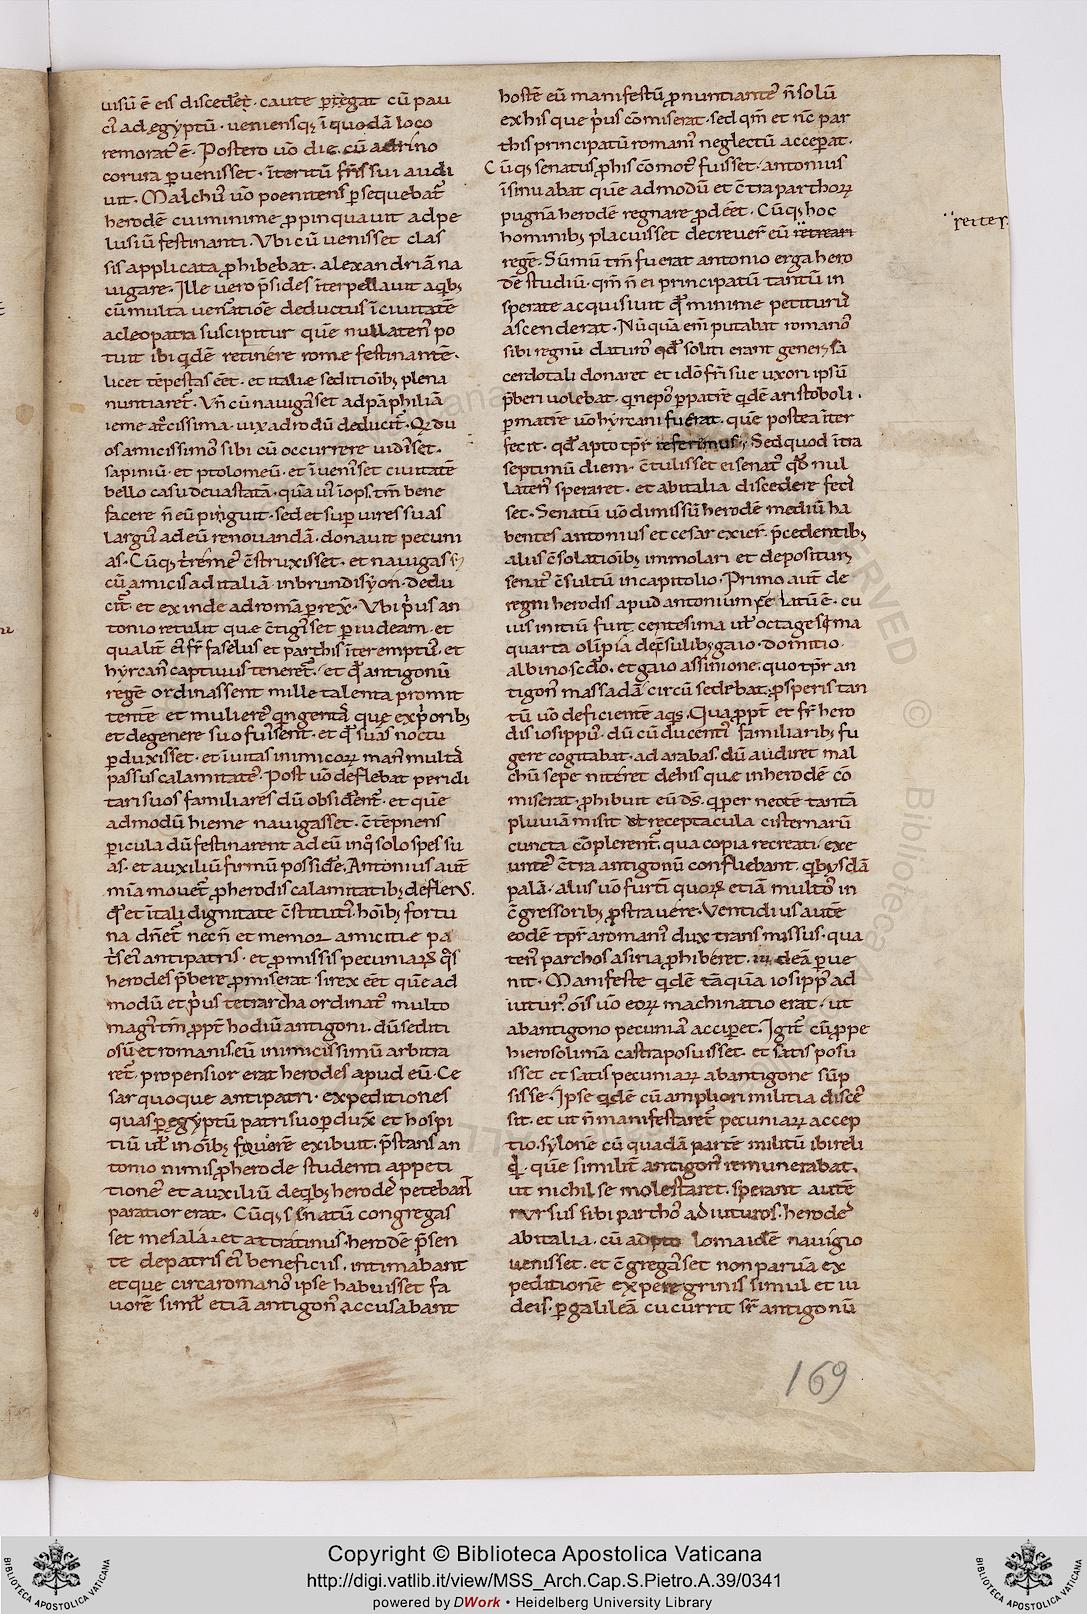 uisũ ẽ eis discedet̃. caute ꝑtegat cũ pau
ci ad egyptũ. ueniensq; ĩ quodã loco
remorat᷒ ẽ. Postero ũo die. cũ ad rino
corura peruenisset. ĩteritũ fr̃is sui audi
uit. Malchũ ũo poenitens ꝑsequebat᷒
herodẽ cui minime ꝓpinquauit ad pe
lusiũ festinanti. Vbi cũ uenisset clas
sis applicata ꝓhibebat. alexandriã na
uigare. Ille uero p̃sides ĩterpellauit a qib;
cũ multa uen̾atiõe deductus ĩ ciuitatẽ
a cleopatra suscipitur que nullaten᷒ po
tuit ibi qdẽ retinere rome festinantẽ.
licet tẽpestas eẽt. et italie seditioĩb; plena
nuntiaret᷒. Vñ cũ nauigasset ad pãphiliã
ieme at̾cissima. uix ad rodũ deducit᷒. Q̾ du
os amicissimos sibi cũ occurrere uidisset.
sapiniũ. et ptolomeũ. et ĩuenisset ciuitatẽ
bello casu deuastatã. quãuis ĩops. tm̃ bene
facere ñ eũ pinguit. sed et sup uires suas
largi᷒ ad eũ renouandã. donauit pecuni
as. Cũq; t̾rem̃e c̃struxisset. et nauigass;
cũ amicis ad italiã. in brundisyon. dedu
cit᷒. et exinde ad romã ꝑrex̃. Vbi p̾us an
tonio retulit que c̃tigisset ꝑ iudeam. et
qualit̾ ei᷒ fr̃ faselus et parthis ĩteremptũ. et
hyrcan᷒ captiuus teneret᷒. et qđ antigonũ
regẽ ordinassent mille talenta promit
tentẽ et mulieres quingentas que ex p̾orib;
et degenere suo fuissent. et qđ suas noctu
ꝑduxisset. et ĩuitas inimicoꝝ man᷒ multã
passus calamitatẽ. Post ũo deflebat peridi
tari suos familiares dũ obsiderent᷒. et que
admodũ hieme nauigasset. c̃tẽpnens
pericula dũ festinarent ad eũ in q̾ solo spes su
as. et auxiliũ firmũ posside̾. Antonius aut̃
mĩa mouet᷒ ꝓ herodis calamitatib; defler̾.
qđ et ĩtali dignitate c̃stituti᷒. hoĩb; fortu
na dñet᷒ necñ et memor amicitie pa
tris ei᷒ antipatris. et ꝓmissis pecuniaꝝ qs
herodes p̃bere ꝓmiserat. si rex eẽt que ad
modũ et p̾us tetrarcha ordinat᷒ multo
magis tm̃ ꝓpt̾ hodiũ antigoni. dũ sediti
osũ et romanis. eũ inimicissimũ arbitra
ret᷒. propensior erat herodes apud eũ. Ce
sar quoque antipatri. expeditiones
quas ꝑ egyptũ patri suo ꝑdux̃. et hospi
tiũ uł in oĩb; fauorẽ exibuit. p̃stans an
tonio nimis ꝓ herode studenti appeti
tiones et auxiliũ de qib; herodes petebant̾
paratior erat. Cũq; senatũ congregas
set mesala. et attratinus. herodẽ p̃sen
te de patris ei᷒ beneficiis. intimabant
et que circa romanos ipse habuisset fa
uorẽ. simł etiã antigonũ accusabant
hostẽ eũ manifestũ ꝓnuntiantes ñ solũ
ex his que p̾us cõmiserat. sed qm̃ et nc̃ par
this principatũ romani᷒ neglectũ acceperat.
Cũq; senatus ꝓ his cõmot᷒ fuisset. antonius
ĩsinuabat que admodũ et c̃tra parthoꝝ
pugnã herodẽ regnare ꝓdeẽt. Cũq; hoc
hominib; placuisset decreuer̃ eũ retreari
regẽ. Sũmũ tm̃ fuerat antonio erga hero
dẽ studiũ. qm̃ ñ ei principatũ tantũ in
sperate acquisiuit qđ minime petiturus
ascenderat. Nũquã em̃ putabat romanos
sibi regnũ daturos qđ soliti erant generi sa
cerdotali donaret et ido fr̃i sue uxori ipsũ
p̃beri uolebat. qi nepos ꝑ patrẽ qdẽ aristoboli.
ꝑ matrẽ ũo hyrcani fuerat. que postea ĩter
fecit. qđ apto tp̃r referimus. Sed quod ĩtra
septimũ diem. c̃tulisset ei senat᷒ qđ nul
laten᷒ speraret. et ab italia discedere feci
set. Senatũ ũo dimissũ herodẽ mediũ ha
bentes antonius et cesar exier̃. p̃cedentib;
aliis c̃solatioĩb; immolari et deposituri
senat᷒ c̃sultũ in capitolio. Primo aut̃ de
regni herodis apud antonium celatũ ẽ. cu
ius initiũ fuit centesima uł octagesima
quarta olĩpia de c̃sulib; gaio. domitio.
albino scđo. et gaio assinione. quo tp̃r an
tigon᷒ massadã circũ sedebat. ꝓsperis tan
tũ ũo deficientẽ aqs. Qua ꝓpt̾ et fr̃ hero
dis iosippũ. dũ cũ ducenti᷒ familiarib; fu
gere cogitabat. ad arabas. dũ audiret mal
chũ sepe niteret de his que in herodẽ co
miserat. ꝓhibuit eũ ds̃. qi per noctẽ tantã
pluuiã misit ut receptacula cisternarũ
cuncta cõplerent᷒. qua copia recreati. exe
untes c̃tra antigonũ confliebant. qibusdã
palã. aliis ũo furti quoꝝ etiã multos in
c̃gressorib; ꝓstrauere. Ventidius autẽ
eodẽ tp̃r a romani᷒ dux transmissus. qua
ten᷒ parchos a siria ꝓhiberet. iudeã ꝑue
nit. Manifeste qdẽ tãquã iosippũ ad
iutur᷒. ois ũo eoꝝ machinatio erat. ut
ab antigono pecuniã acciperet. Igit᷒ cũ ꝓpe
hierosolimã castra posuisset. et satis posu
isset et satis pecuniaꝝ ab antigone sũp
sisse. Ipse qdẽ cũ ampliori militia disces
sit. et ut ñ manifestaret᷒ pecuniaꝝ accep
tio. sylonẽ cũ quadã partẽ militũ ibi reli
q̃. que similit̾ antigon᷒ remunerabat.
ut nichil se molestaret. sperant autẽ
rursus sibi parthos adiuturos. herodes
ab italia. cũ ad lomaidẽ nauigio
uenisset. et c̃gregasset non paruã ex
peditionẽ ex peregrinis simul et iu
deis. ꝑ galileã cucurrit sr̃ antigonũ
reiter.
169
Copyright © Biblioteca Apostolica Vaticana
http://digi.vatlib.it/view/MSS_Arch.Cap.S.Pietro.A.39/0341
powered by DWork • Heidelberg University Library
BIBLIOTECA APOSTOLICA VATICANA
BIBLIOTECA APOSTOLICA VATICANA